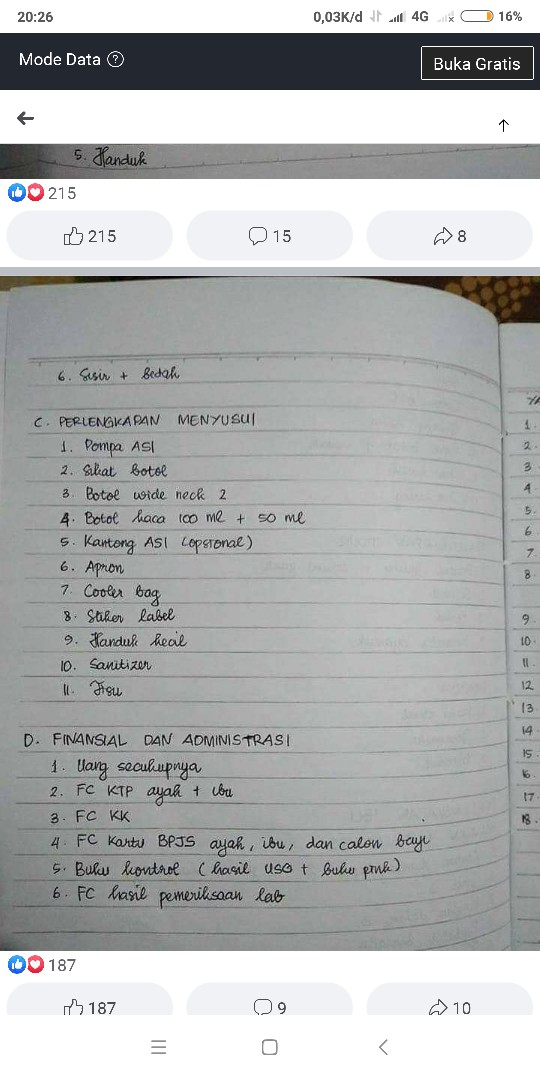 20:26 0,03K/d 4G 16%
Mode Data ? Buka Gratis
5. Handuk
215
215 15 8
6. Sisir + Bedak
C. PERLENGKAPAN MENYUSUI
1. Pompa ASI
2. Sikat botol
3. Botol wide neck 2
4. Botol kaca 100 ml + 50 ml
5. Kantong ASI (opsional)
6. Apron
7. Cooler bag
8. Stiker label
9. Handuk kecil
10. Sanitizer
11. Tisu
D. FINANSIAL DAN ADMINISTRASI
1. Uang secukupnya
2. FC KTP ayah + ibu
3. FC KK
4. FC Kartu BPJS ayah, ibu, dan calon bayi
5. Buku kontrol (hasil USG + buku pink)
6. FC hasil pemeriksaan lab
1.
2.
3
4.
5.
6.
7.
8
9.
10.
11.
12
13
14
15
16
17.
18.
187
187 9 10